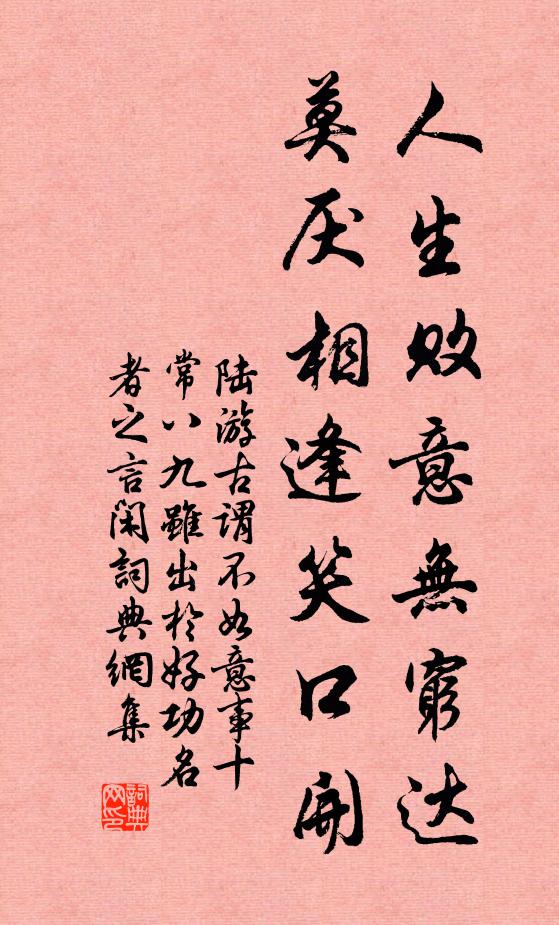 人生败意無窮达
莫厌相逢笑口開
陆游古谓不如意事十
常八九雖出於好功名
者之言闲詞典網集
詞典网印